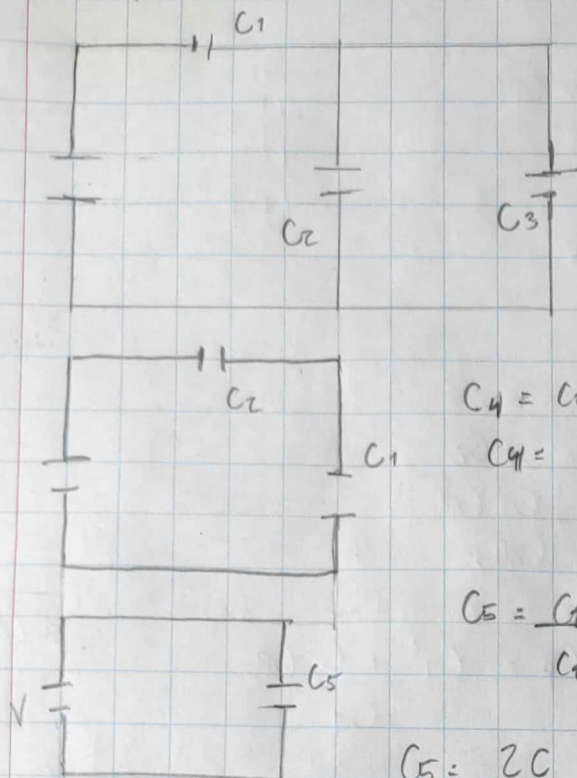 C1
C2
C3
C2
C4 = C
C1
C4 =
C5 = C
C5
V
C5 = 2C